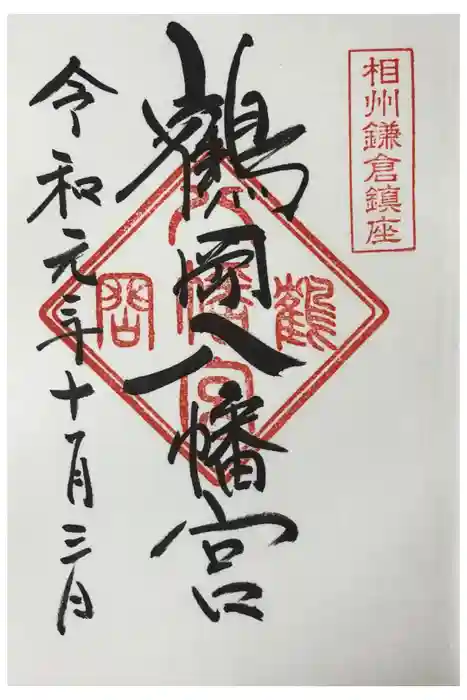 相州鎌倉鎮座
鶴岡八幡宮
鶴
岡
八幡宮
令和元年十一月三日